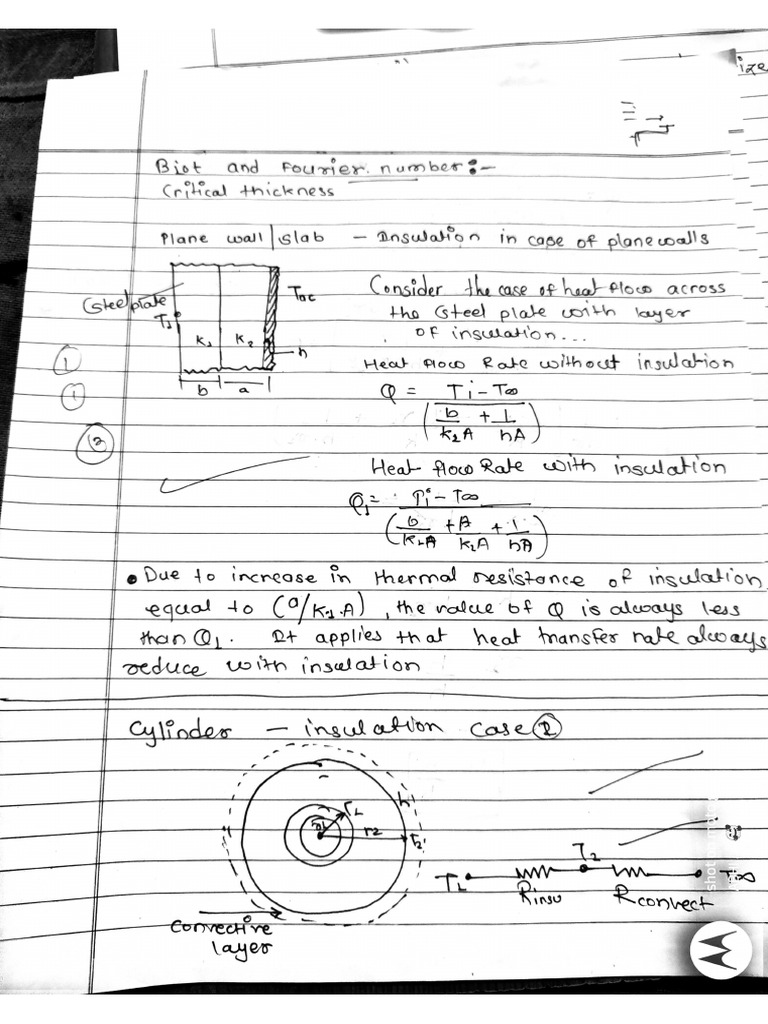 ize
Biot and Fourier number:-
Critical thickness
Plane wall | slab - Insulation in case of plane walls
Steel plate
T∞
T1
K1
K2
h
b
a
Consider the case of heat flow across
the steel plate with layer
of insulation...
1
1
2
Heat flow Rate without insulation
Q = Ti-T∞
(b/K2A + 1/hA)
Heat flow Rate with insulation
Q1 = Ti-T∞
(b/K1A + A/K2A + 1/hA)
• Due to increase in thermal resistance of insulation
equal to (a/K1.A), the value of Q is always less
than Q1. It applies that heat transfer rate always
reduce with insulation
Cylinder - insulation case 2
r1
r2
h
r2'
T1
Rinsu
T2
Rconvect
T∞
Convective
layer